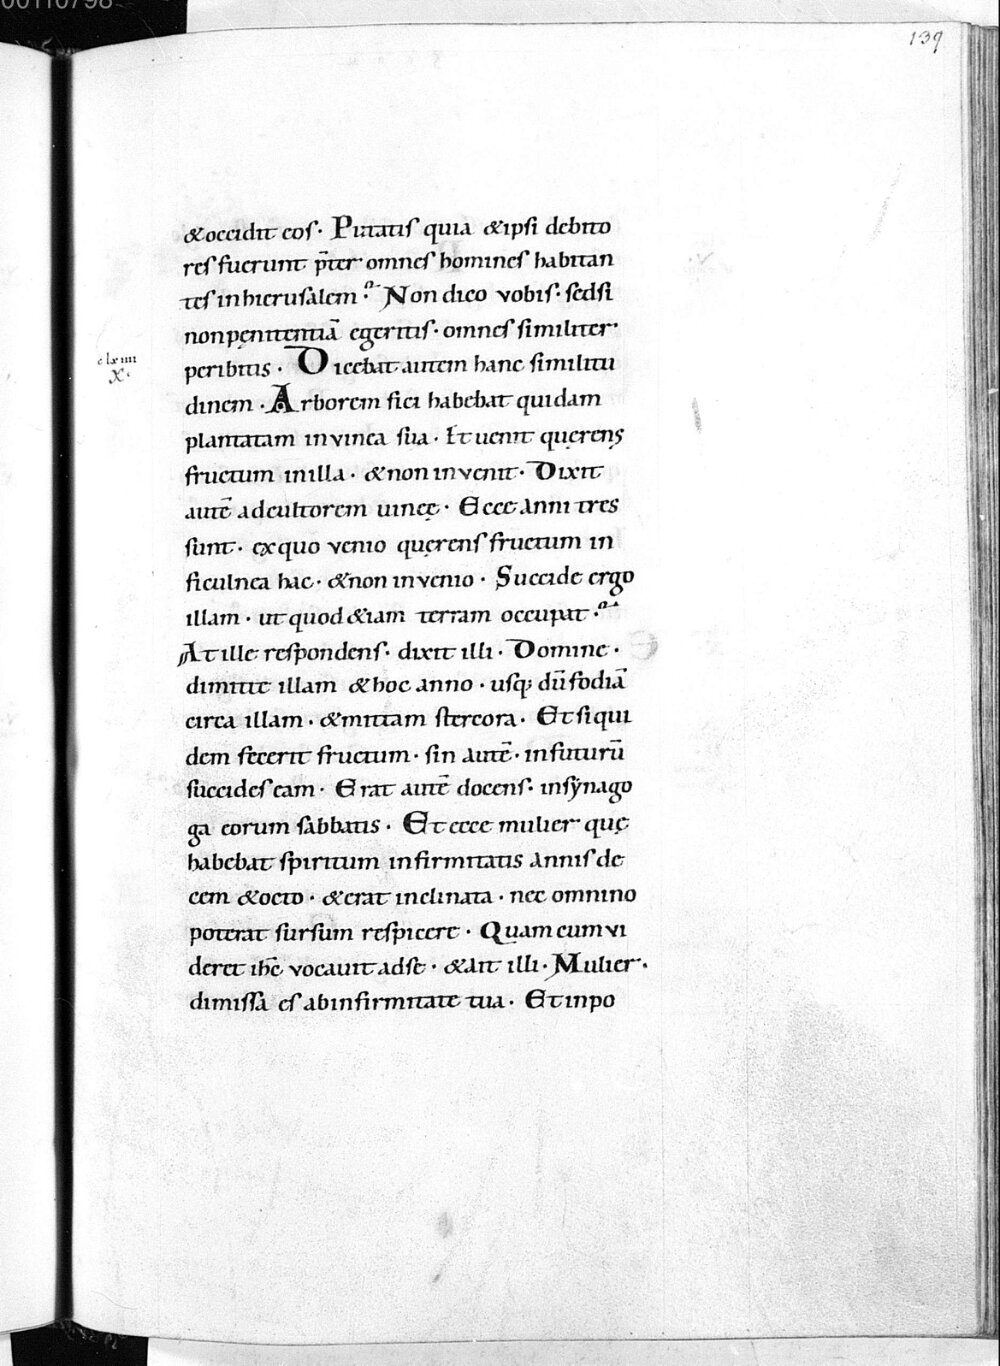 00110798
139
&occidit eos · Putatis quia &ipsi debito
res fuerunt p̄ter omnes homines habitan
tes in hierusalem · Non dico vobis · sed si
non pęnitentiā egeritis · omnes similiter
peribitis · Dicebat autem hanc similitu
clxiiii
X ·
dinem · Arborem fici habebat quidam
plantatam in vinea sua · Et uenit quęrens
fructum in illa · & non invenit · Dixit
autē ad cultorem uineę · Ecce anni tres
sunt · ex quo venio quęrens fructum in
ficulnea hac · & non invenio · Succide ergo
illam · ut quod &iam terram occupat ·
At ille respondens · dixit illi · Domine ·
dimitte illam & hoc anno · usq; dū fodiā
circa illam · & mittam stercora · Et siqui
dem fecerit fructum · sin autē · in futurū
succides eam · Erat autē docens · in synago
ga eorum sabbatis · Et ecce mulier quę
habebat spiritum infirmitatis annis de
cem & octo · & erat inclinata · nec omnino
poterat sursum respicere · Quam cum vi
deret ihc̄ vocavit ad se · & ait illi · Mulier ·
dimissa es ab infirmitate tua · Et inpo